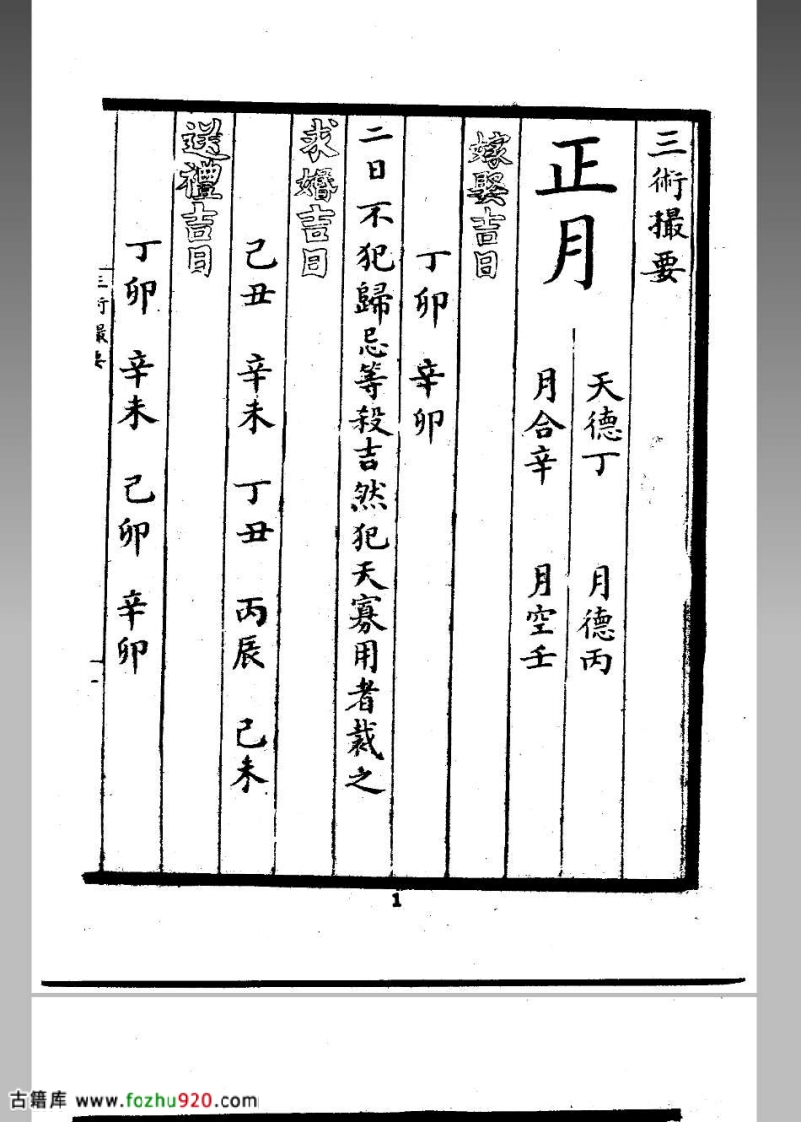 三術撮要
正月
天德丁　月德丙
月合辛　月空壬
嫁娶吉日
丁卯　辛卯
二日不犯歸忌等殺吉然犯天寡用者裁之
求婚吉日
己丑　辛未　丁丑　丙辰　己未
送禮吉日
丁卯　辛未　己卯　辛卯
三術撮要
一
1
古籍库 www.fozhu920.com